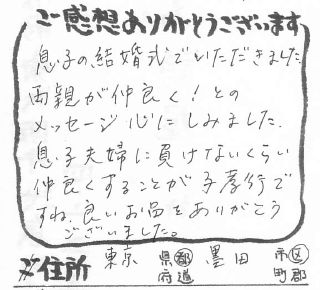 ご感想ありがとうございます
息子の結婚式でいただきました。
両親が仲良く!との
メッセージ心にしみました。
息子夫婦に負けないくらい
仲良くすることが子孝行で
すね。良いお品をありがとう
ございました。
ご住所 東京 都道府県 墨田 市区町郡